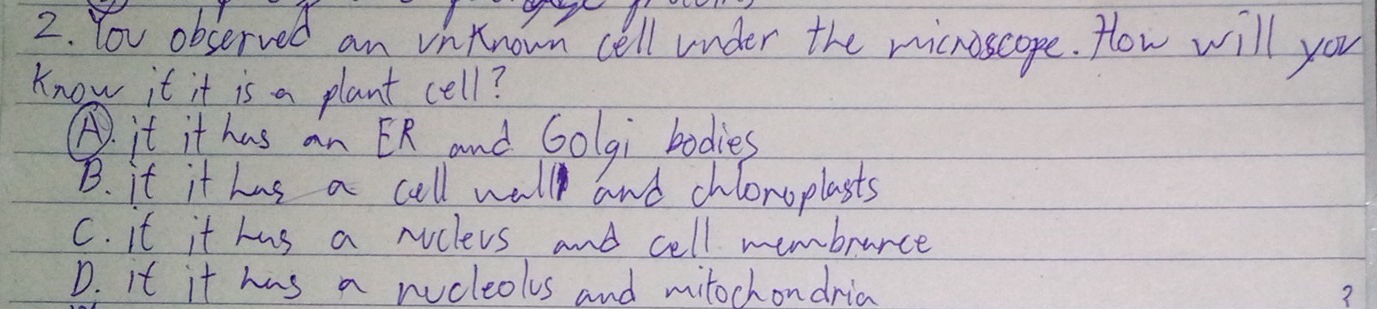 2. You observed an unknown cell under the microscope. How will you
know if it is a plant cell?
A. if it has an ER and Golgi bodies
B. if it has a cell wall and chloroplasts
C. if it has a nucleus and cell membrance
D. if it has a nucleolus and mitochondria
?